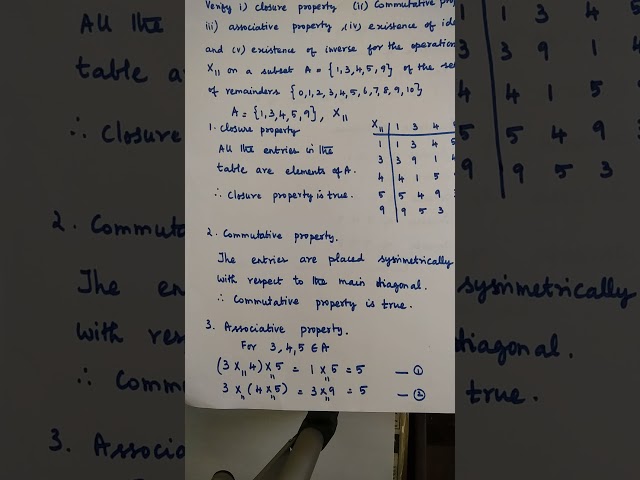 Verify i) closure property (ii) Commutative
iii) associative property, (iv) existence of
and (v) existence of inverse for the operation
X₁₁ on a subset A = {1,3,4,5,9} of the
of remainders {0,1,2,3,4,5,6,7,8,9,10}
A = {1,3,4,5,9}, X₁₁
1. Closure property
All the entries in the
table are elements of A.
∴ Closure property is true.
X₁₁ | 1 3 4
1 | 1 3 4 5
3 | 3 9 1 4
4 | 4 1 5
5 | 5 4 9
9 | 9 5 3
2. Commutative property.
The entries are placed sysimetrically
with respect to the main diagonal.
∴ Commutative property is true.
3. Associative property.
For 3,4,5 ∈ A
(3 X₁₁ 4) X₁₁ 5 = 1 X₁₁ 5 = 5 — ①
3 X₁₁ (4 X₁₁ 5) = 3 X₁₁ 9 = 5 — ②
All the
table
∴ Closure
2. Commuta
The en
with res
∴ Commu
3. Associa
1 3 4 5
3 9 1 4
4 1 5
5 4 9
9 5 3
sysimmetrically
diagonal.
true.